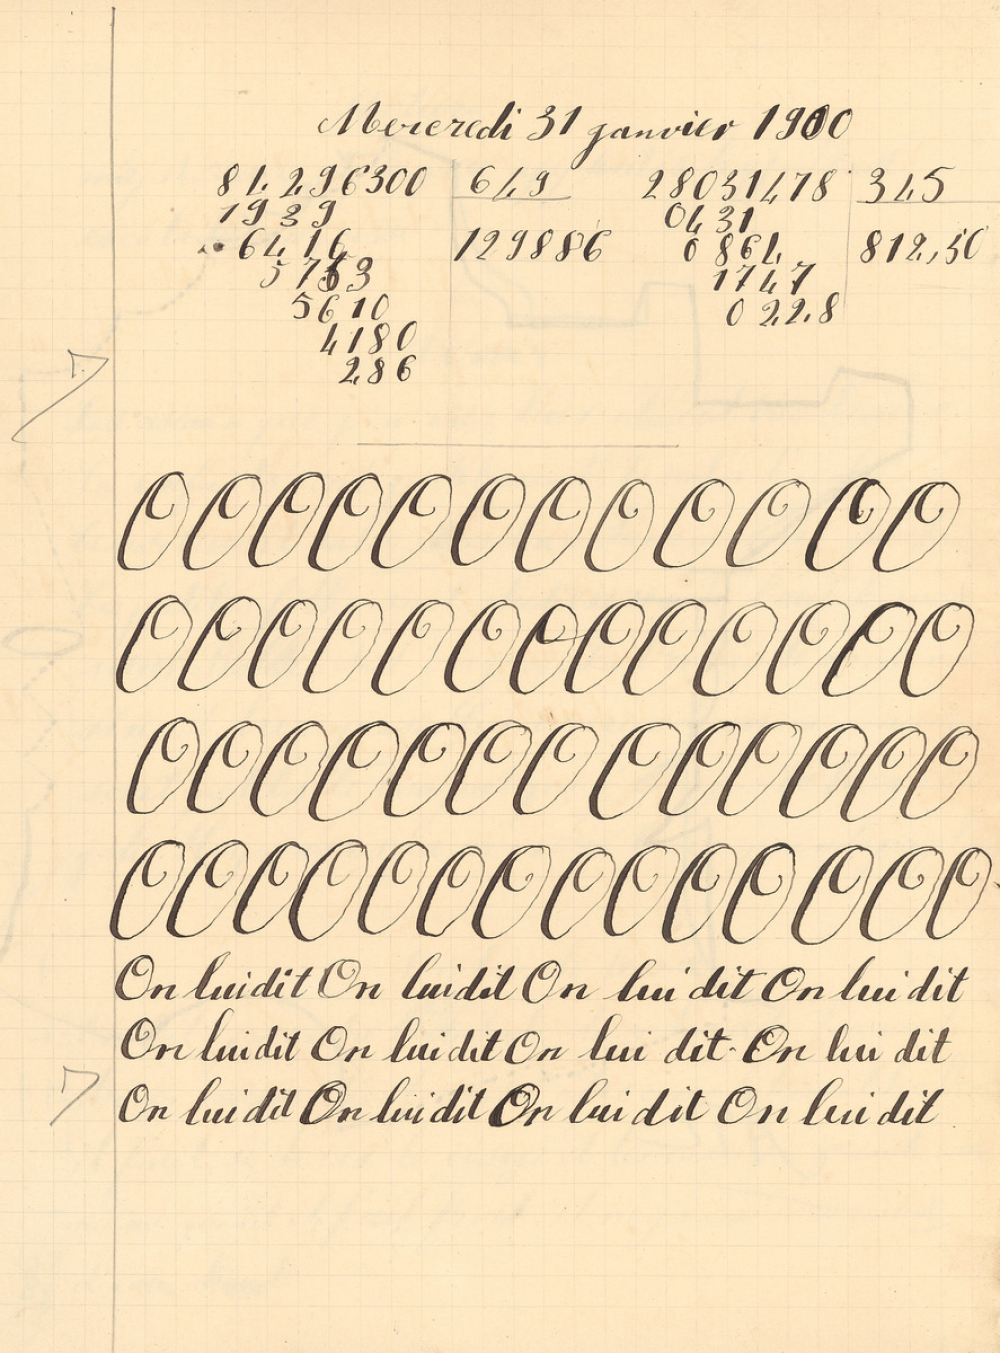 Mercredi 31 janvier 1900
84296300 649 28031478 345
1939 0431
6416 129886 0864 812,50
5753 1747
5610 0228
4180
286
O O O O O O O O O O O O
O O O O O O O O O O O O O
O O O O O O O O O O O O O
O O O O O O O O O O O O O O
On lui dit On lui dit On lui dit On lui dit
On lui dit On lui dit On lui dit. On lui dit
On lui dit On lui dit On lui dit On lui dit